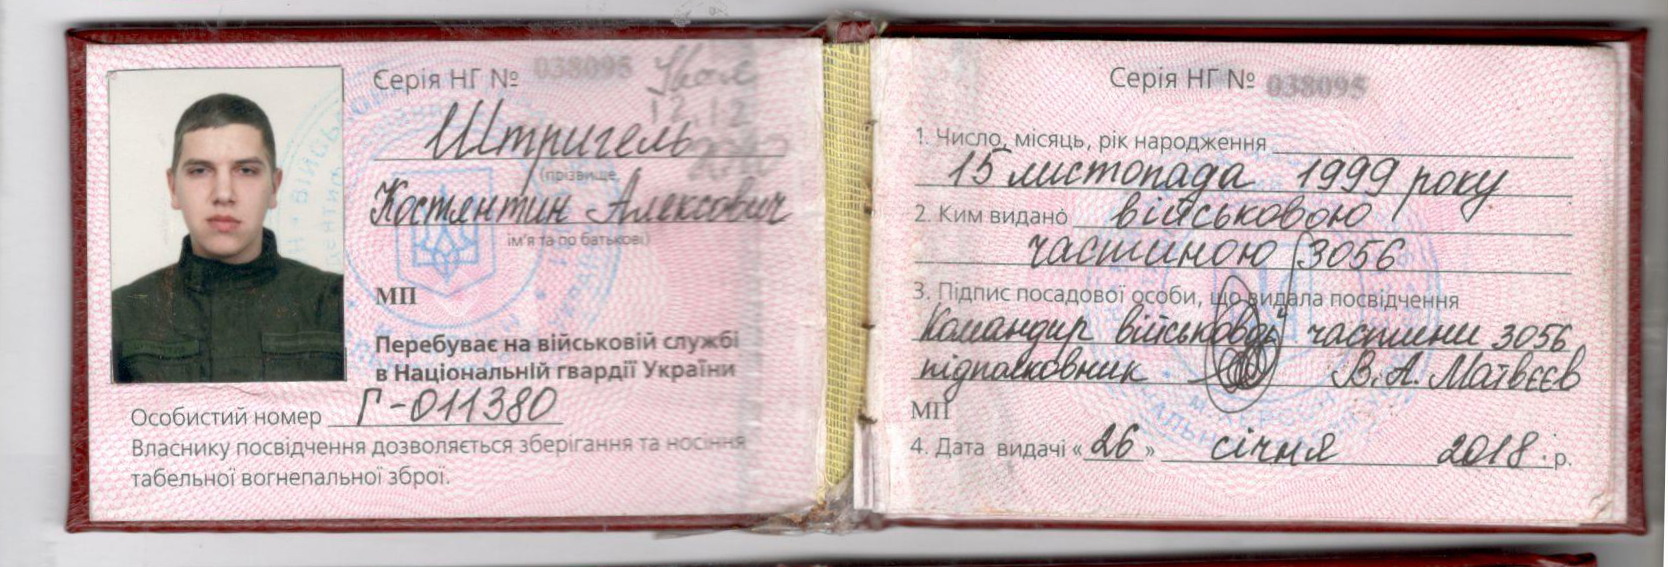 Серія НГ № 038095
12.12
Штригель
(прізвище,
Костентин Алексович
ім'я та по батькові)
МП
Перебуває на військовій службі
в Національній гвардії України
Особистий номер Г-011380
Власнику посвідчення дозволяється зберігання та носіння
табельної вогнепальної зброї.
Серія НГ № 038095
1. Число, місяць, рік народження
15 листопада 1999 року
2. Ким видано військовою
частиною 3056
3. Підпис посадової особи, що видала посвідчення
Командир військової частини 3056
підполковник В.А. Матвєєв
МП
4. Дата видачі «26» січня 2018 р.